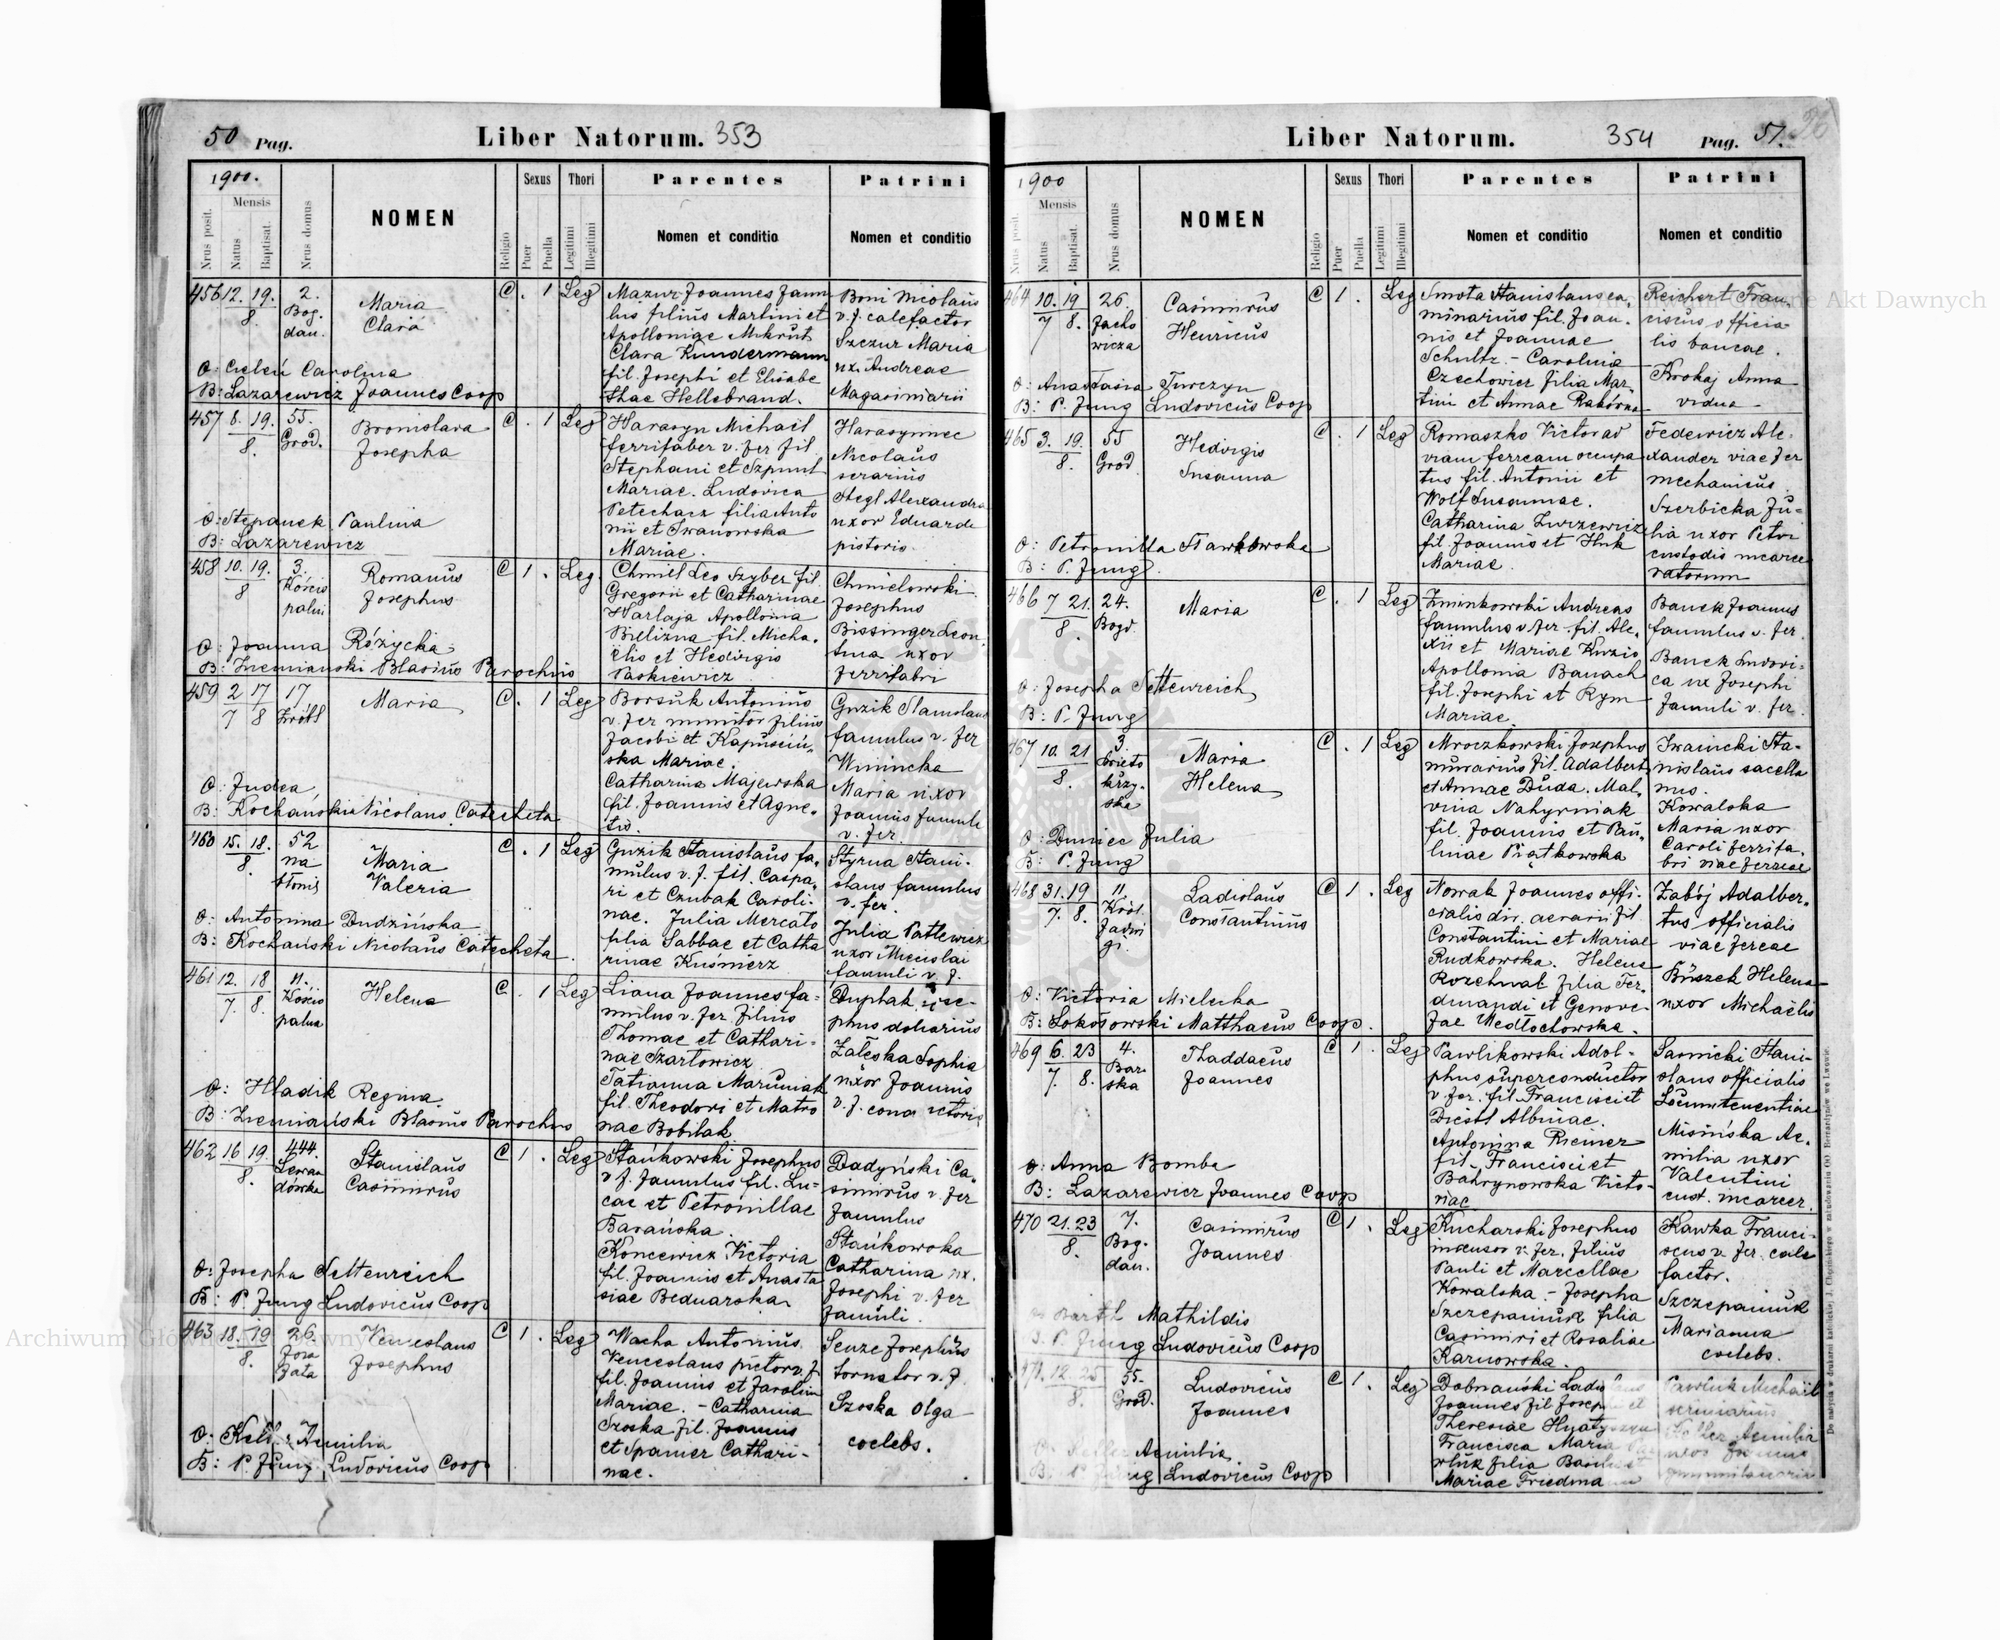 50 Pag.
Liber Natorum. 353
1900.
Mensis
Nrus posit.
Natus
Baptisat.
Nrus domus
NOMEN
Religio
Sexus
Puer
Puella
Thori
Legitimi
Illegitimi
Parentes
Nomen et conditio
Patrini
Nomen et conditio
456 12. 19. 2. Maria C . 1 Leg
8. Bog
dan. Clara
Mazur Joannes fam
lus filius Martini et
Apolloniae Mokrut
Clara Kundermann
fil. Josephi et Elisabe
thae Hellebrand.
Boni Nicolaus
v. f. calefactor
Szczur Maria
ux. Andreae
Magasiniarii
O: Cieleń Carolina
B: Lazarewicz Joannes Coop
457 8. 19. 55. Bronislava C . 1 Leg
8. Grod. Josepha
Harasyn Michael
ferrifaber v. fer fil
Stephani et Szpunt
Mariae. Ludovica
Petechacz filia Anto
nii et Iwanowska
Mariae.
Harasymiec
Nicolaus
serarius
Stegl Alexandra
uxor Eduardi
pistoris.
O: Stepanek Paulina
B: Lazarewicz
458 10. 19. 3. Romanus C 1 . Leg.
8 Kościo
palni Josephus
Chmill Leo Szyber fil.
Gregorii et Catharinae
Harlaja Apollonia
Bielizna fil. Micha-
ëlis et Hedvigis
Paskiewicz
Chmielowski
Josephus
Bissinger Leon
tina uxor
ferrifabri
O: Joanna Różycka
B: Ziemiański Blasius Parochus
459 2 17 17 Maria C . 1 Leg
7 8 Król
Borsuk Antonius
v. fer munitor filius
Jacobi et Kapuściń-
ska Mariae.
Catharina Majewska
fil. Joannis et Agne-
tis.
Guzik Stanislaus
famulus v. fer
Winincka
Maria uxor
Joannis famuli
v. fer.
O: Judea
B: Kochański Nicolaus Catecheta
460 15. 18. 52 Maria C . 1 Leg
8. na
błonie Valeria
Guzik Stanislaus fa-
mulus v. f. fil. Caspa-
ri et Czubak Caroli-
nae. Julia Mercato
filia Sabbae et Catha
rinae Kuśnierz
Styrna Stani-
slaus famulus
v. fer.
Julia Patlewicz
uxor Miecislai
famuli v. f.
O: Antonina Dudzińska
B: Kochański Nicolaus Catecheta.
461 12. 18 11. Helena C . 1 Leg
7. 8. Kościo
palna
Liana Joannes fa-
mulus v. fer. filius
Thomae et Cathari-
nae Szartowicz
Tatianna Maruniak
fil. Theodori et Matro
nae Bobilak.
phus doliarius
Załęska Sophia
uxor Joannis
O: Hladik Regina
B: Ziemiański Blasius Parochus
462 16 19. 444. Stanislaus C 1 . Leg
8. Lewan
dówka Casimirus
Stańkowski Josephus
v f. famulus fil. Lu-
cae et Petronillae
Barańska.
Koncewicz Victoria
fil. Joannis et Anasta
siae Bednarska
Dadyński Ca-
simirus v. fer
famulus
Stańkowska
Catharina ux.
Josephi v. fer
famuli.
O: Josepha Settenreich
B: P. Jung Ludovicus Coop
463 18. 19 26. Venceslaus C 1 . Leg
8. Josa
fata Josephus
Wacha Antonius
Venceslaus pictor v. f
fil. Joannis et Jarolim
Mariae. - Catharina
Szoska fil. Joannis
et Spamer Cathari-
nae.
Senze Josephus
tornator v. f.
Szoska Olga
coelebs.
Aemilia
B: P. Jung Ludovicus Coop
Liber Natorum. 354 Pag. 51.
1900
Mensis
Nrus posit.
Natus
Baptisat.
Nrus domus
NOMEN
Religio
Sexus
Puer
Puella
Thori
Legitimi
Illegitimi
Parentes
Nomen et conditio
Patrini
Nomen et conditio
464 10. 19 26. Casimirus C 1 . Leg
7 8. Zacha
wicza Henricus
Smota Stanislaus ca-
minarius fil. Joan-
nis et Joannae
Schultz. - Carolina
Czechowicz filia Mar-
tini et Annae
Reichert Fran-
ciscus officia-
lis bancae.
Prokaj Anna
vidua
O: Anastasia Turczyn
B: P. Jung Ludovicus Coop
465 3. 19. 55 Hedvigis C . 1 Leg
8. Grod Susanna
Romaszko Victor ad
viam ferream occupa
tus fil. Antonii et
Wolf Susannae.
Catharina Zwrzewicz
fil. Joannis et Huk
Mariae.
Fedewicz Ale-
xander viae fer
mechanicus
Szerbicka Ju-
lia uxor Petri
custodis incarce
ratorum
O: Petronilla Sawkowska
B: P. Jung
466 7 21. 24. Maria C . 1 Leg
8. Bogd
Zminkowski Andreas
famulus v. fer. fil. Ale-
xii et Mariae Kuzio
Apollonia Banach
fil. Josephi et Rym
Mariae.
Banek Joannes
famulus v. fer.
Banek Ludovi-
ca ux Josephi
famuli v. fer.
O: Josepha Settenreich
B: P. Jung
467 10. 21 3. Maria C . 1 Leg
8. święto
krzy-
ska Helena
Mroczkowski Josephus
murarius fil. Adalberti
et Annae Duda. Mal-
vina Nahyrniak
fil. Joannis et Pau-
linae Piątkowska
Iwanicki Sta-
nislaus sacella
nus.
Kowalska
Maria uxor
Caroli ferrifa-
bri viae ferreae
O: Duniec Julia
B: P. Jung
468 31. 19 11. Ladislaus C 1 . Leg
7. 8. Król.
Jadwi
gi. Constantinus
Nowak Joannes offi-
cialis dir. aerarii fil.
Constantini et Mariae
Rudkowska. Helena
Rozehnal filia Fer-
dinandi et Genove-
fae Wedłochowska.
Zabój Adalber-
tus officialis
viae fereae
Buszek Helena
uxor Michaëlis
O: Victoria Mielecka
B: Sokołowski Matthaeus Coop.
469 6. 23 4. Thaddaeus C 1 . Leg
7. 8. Bar-
ska Joannes
Pawlikowski Adol-
phus superconductor
v. fer. fil. Francisci et
Diestl Albinae.
Antonina Riemer
fil. Francisci et
Bahrynowska Victo-
riae
Sasnicki Stani-
slaus officialis
Locumtenentiae
Misińska Ae-
milia uxor
Valentini
cust. incarcer.
O: Anna Bomba
B: Lazarewicz Joannes Coop
470 21. 23 7. Casimirus C 1 . Leg
8. Bog-
dan. Joannes
Kucharski Josephus
incusor v. fer. filius
Pauli et Marcellae
Kowalska - Josepha
Szczepaniuk filia
Casimiri et Rosaliae
Karnowska.
Kawka Franci-
scus v. fer. cale
factor.
Szczepaniuk
Marianna
coelebs.
O: Barth Mathildis
B. P. Jung Ludovicus Coop
471. 12. 25 55. Ludovicus C 1 . Leg
8. Grod. Joannes
Dobrzański Ladislaus
Joannes fil Josephi et
Theresiae
Francisca Maria
wluk filia
Mariae Friedmann
Pawluk Michaël
Aemilia
Aemilia
B. P. Jung Ludovicus Coop
Archiwum Główne Akt Dawnych
Archiwum Główne Akt Dawnych